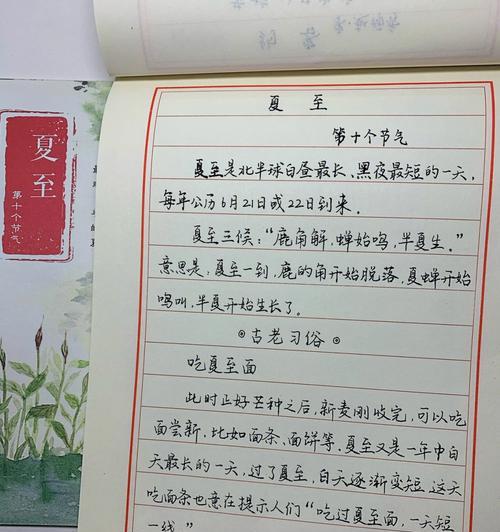 夏至
第十个节气
夏至
第十个节气
夏至是北半球白昼最长、黑夜最短的一天,
每年公历6月21日或22日到来。
夏至三候:“鹿角解,蝉始鸣,半夏生。”
意思是,夏至一到,鹿的角开始脱落,夏蝉开始
鸣叫,半夏开始生长了。
古老习俗
吃夏至面
此时正好芒种之后,新麦刚收完,可以吃
面尝新,比如面条、面饼等,夏至又是一年中白
天最长的一天,过了夏至,白天逐渐变短,这天
吃面条也意在提示人们“吃过夏至面,一天短
一线”